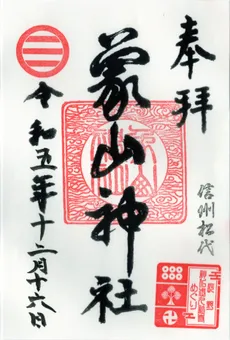 奉拝
信州松代
象山神社
令和五年十二月十六日